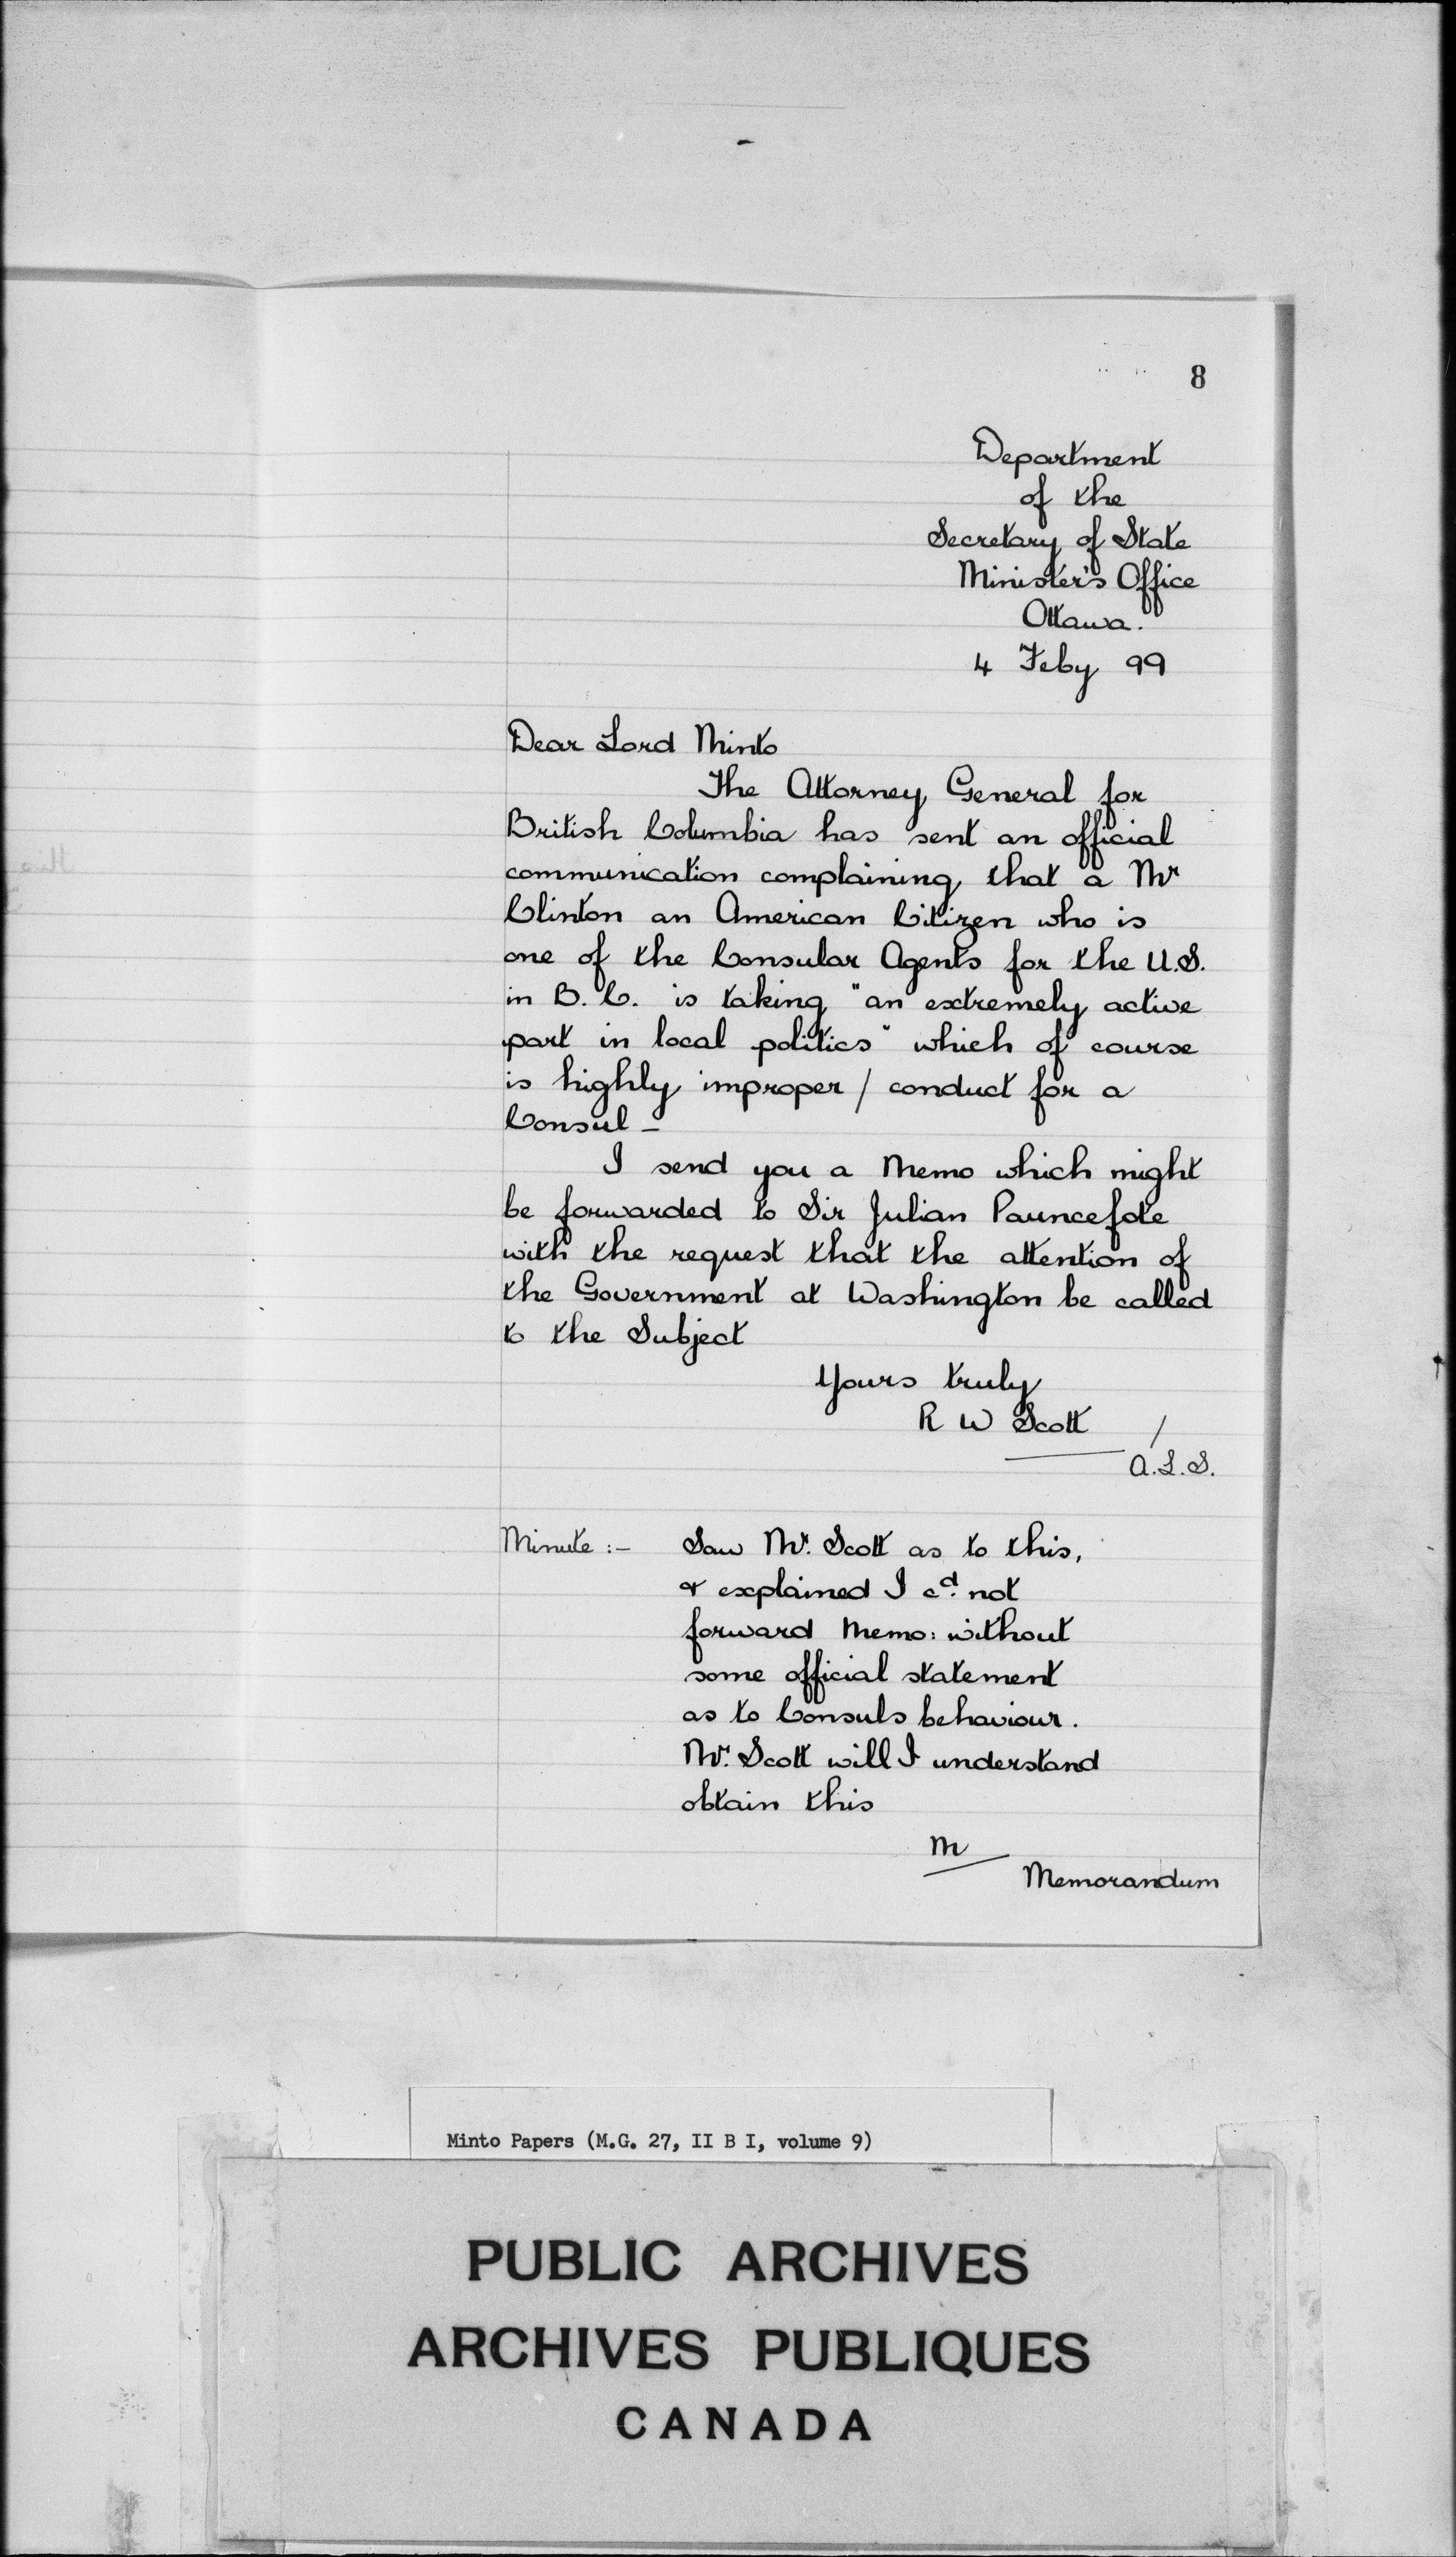 8
Department
of the
Secretary of State
Minister's Office
Ottawa.
4 Feby 99
Dear Lord Minto
The Attorney General for
British Columbia has sent an official
communication complaining that a Mr
Clinton an American Citizen who is
one of the Consular Agents for the U.S.
in B.C. is taking "an extremely active
part in local politics" which of course
is highly improper / conduct for a
Consul -
I send you a Memo which might
be forwarded to Sir Julian Pauncefote
with the request that the attention of
the Government at Washington be called
to the Subject
Yours truly
R W Scott /
A.L.S.
Minute :- Saw Mr. Scott as to this,
& explained I cd. not
forward Memo: without
some official statement
as to Consuls behaviour.
Mr. Scott will I understand
obtain this
M
Memorandum
Minto Papers (M.G. 27, II B I, volume 9)
PUBLIC ARCHIVES
ARCHIVES PUBLIQUES
CANADA